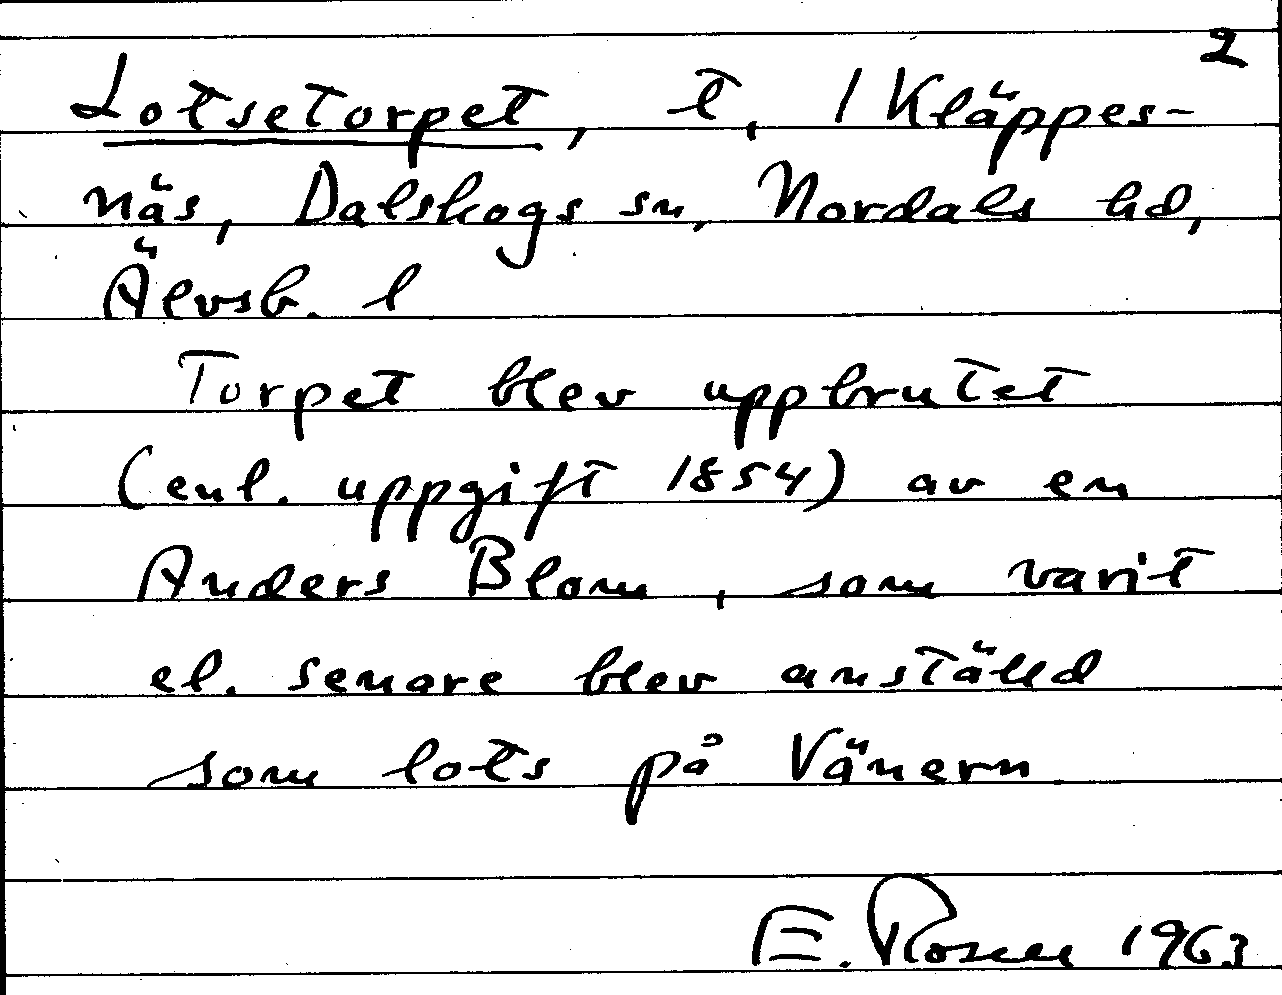 2
Lotsetorpet, t, 1 Kläppes-
näs, Dalskogs sn, Nordals hd,
Älvsb. l
Torpet blev uppbrutet
(enl. uppgift 1854) av en
Anders Blom, som varit
el. senare blev anställd
som lots på Vänern
E. Rosell 1963